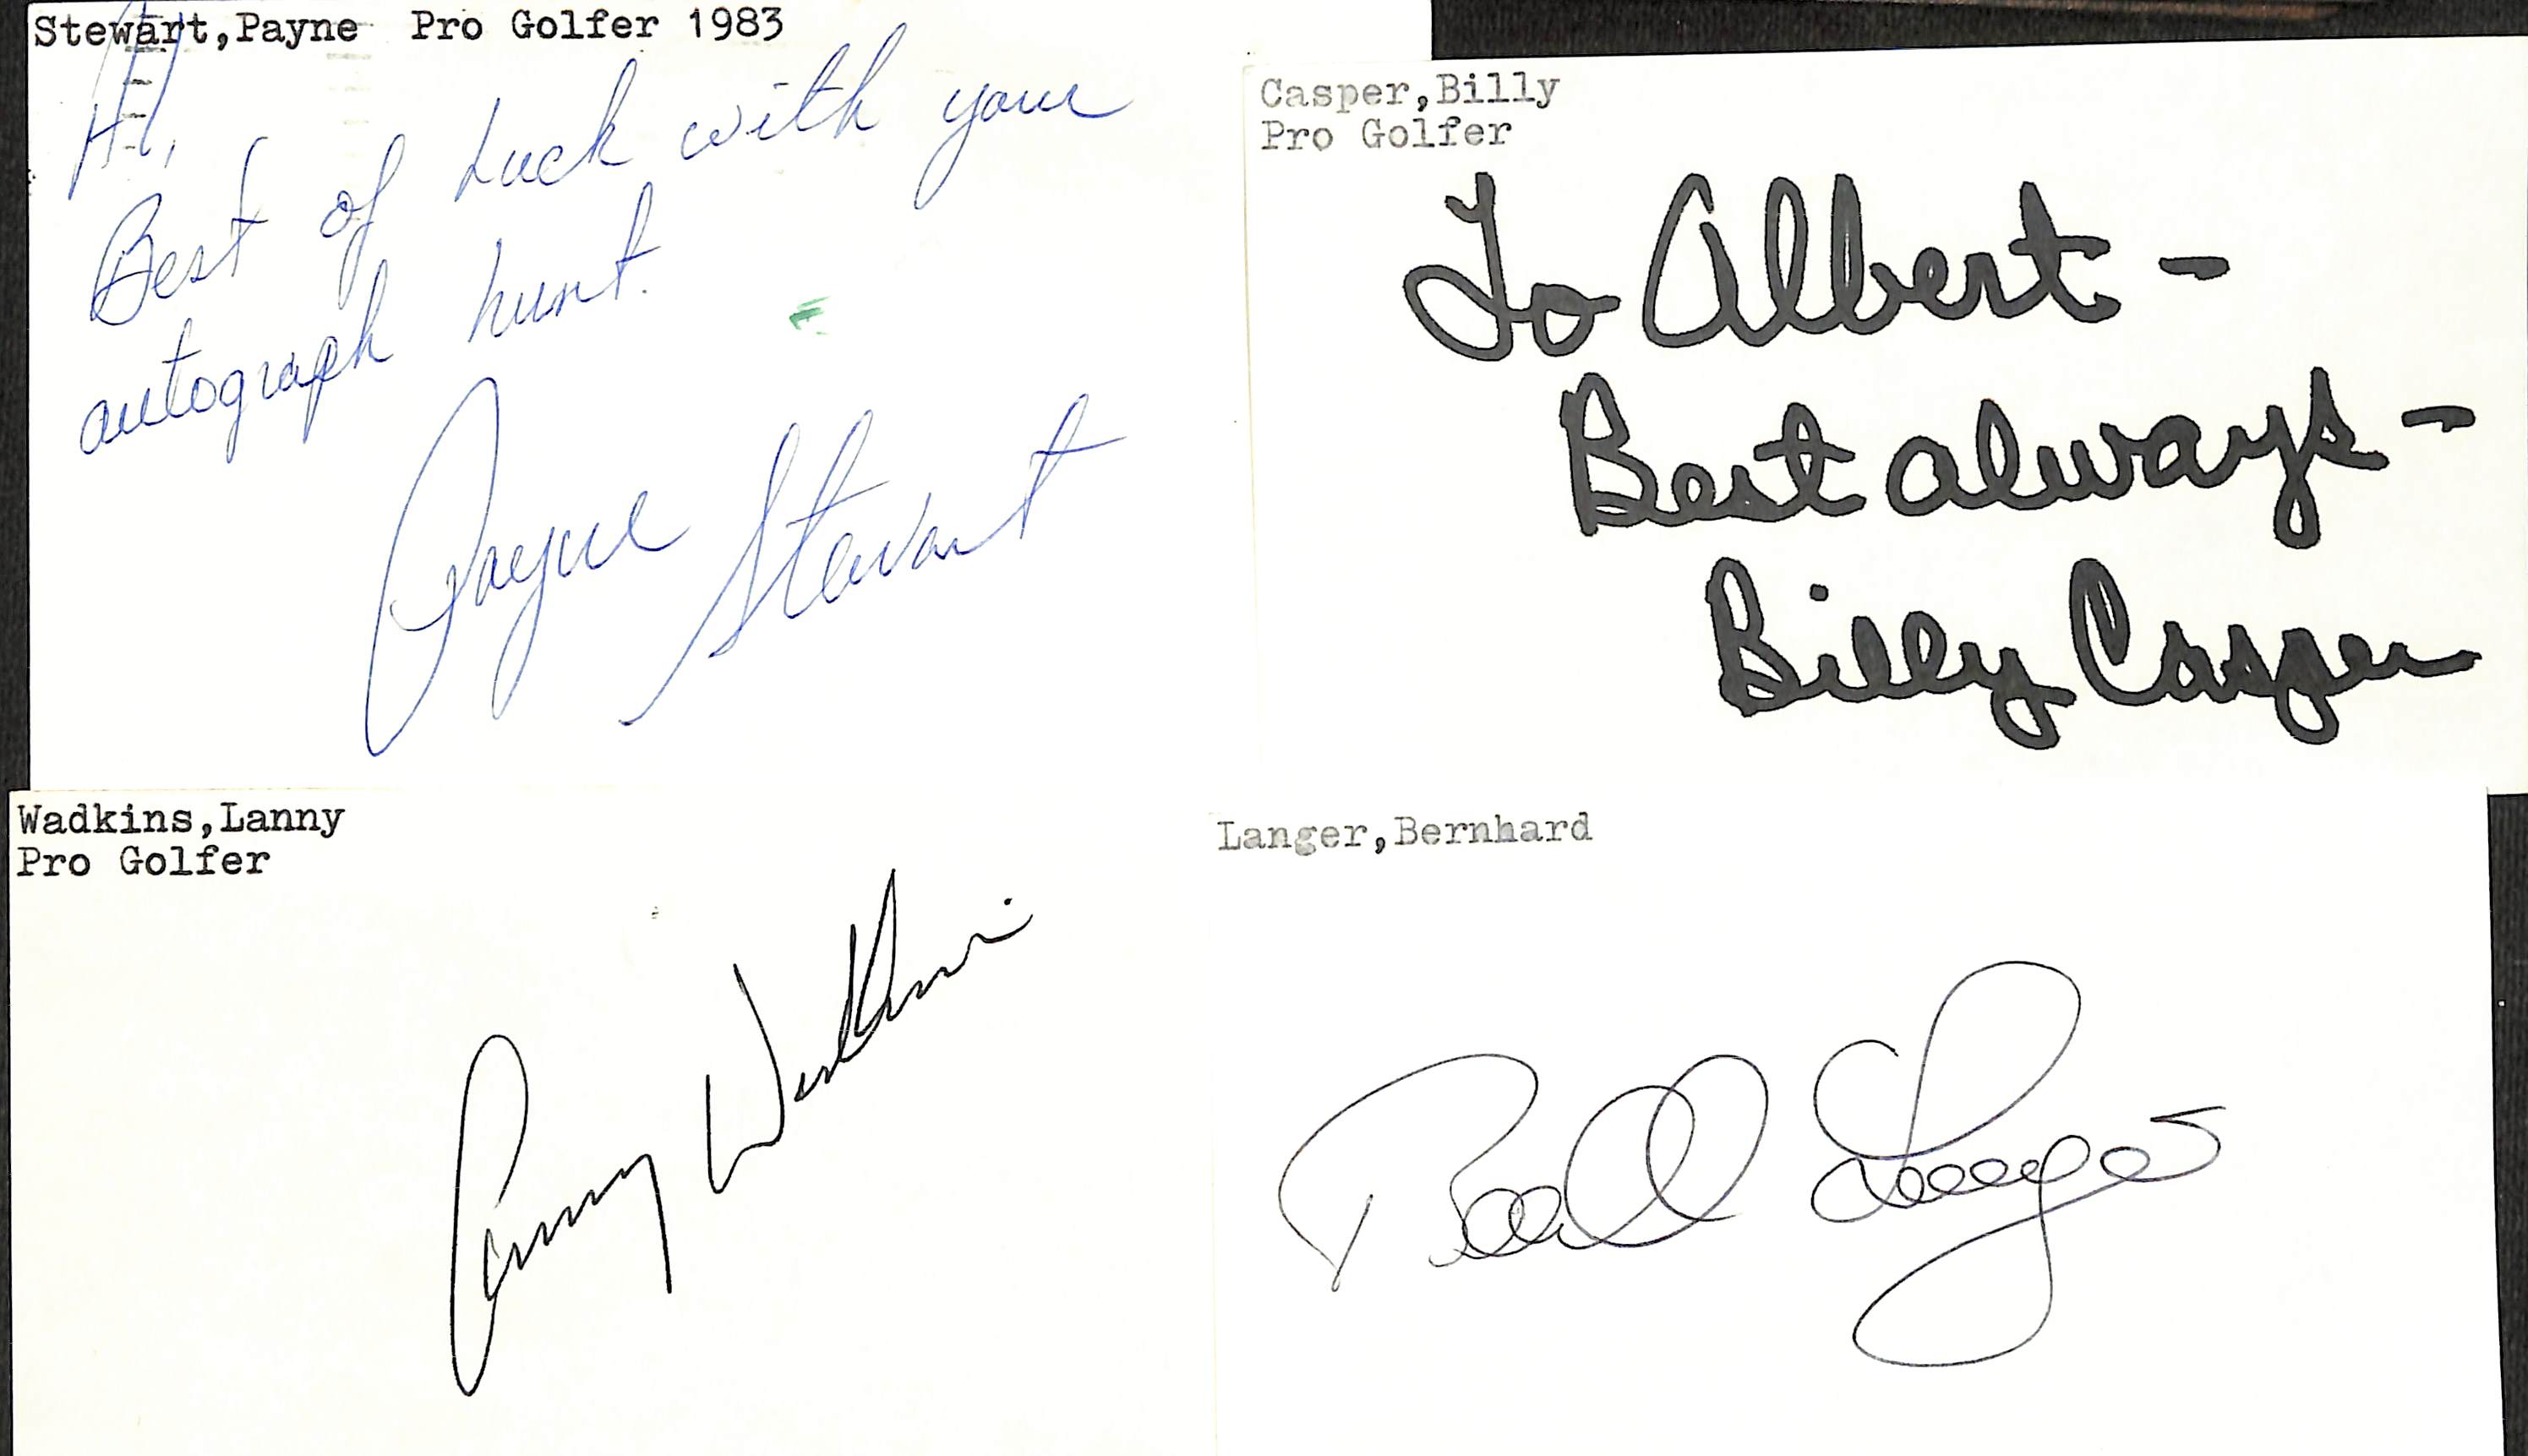 Stewart,Payne Pro Golfer 1983
Hi,
Best of Luck with your
autograph hunt.
Payne Stewart
Casper,Billy
Pro Golfer
To Albert -
Best always -
Billy Casper
Wadkins,Lanny
Pro Golfer
Lanny Wadkins
Langer,Bernhard
Bernhard Langer